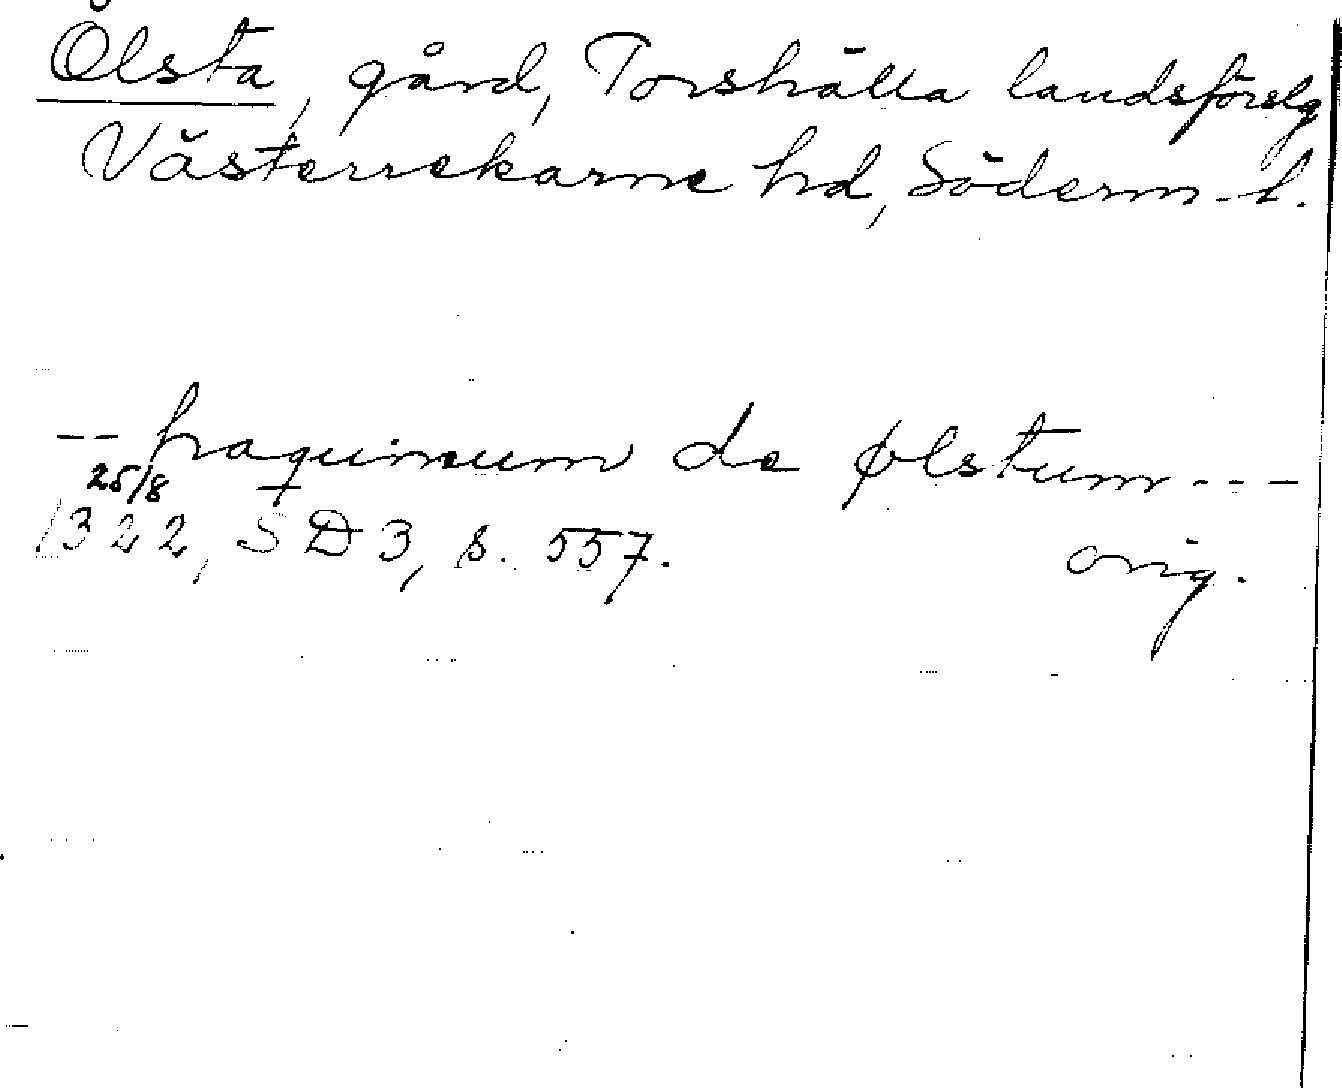 Ölsta, gård, Torshälla landsförslg
Västerrekarne hd, Söderm. l.
-- haquinum de ølstum ---
25/8
1322, SD 3, s. 557. orig.